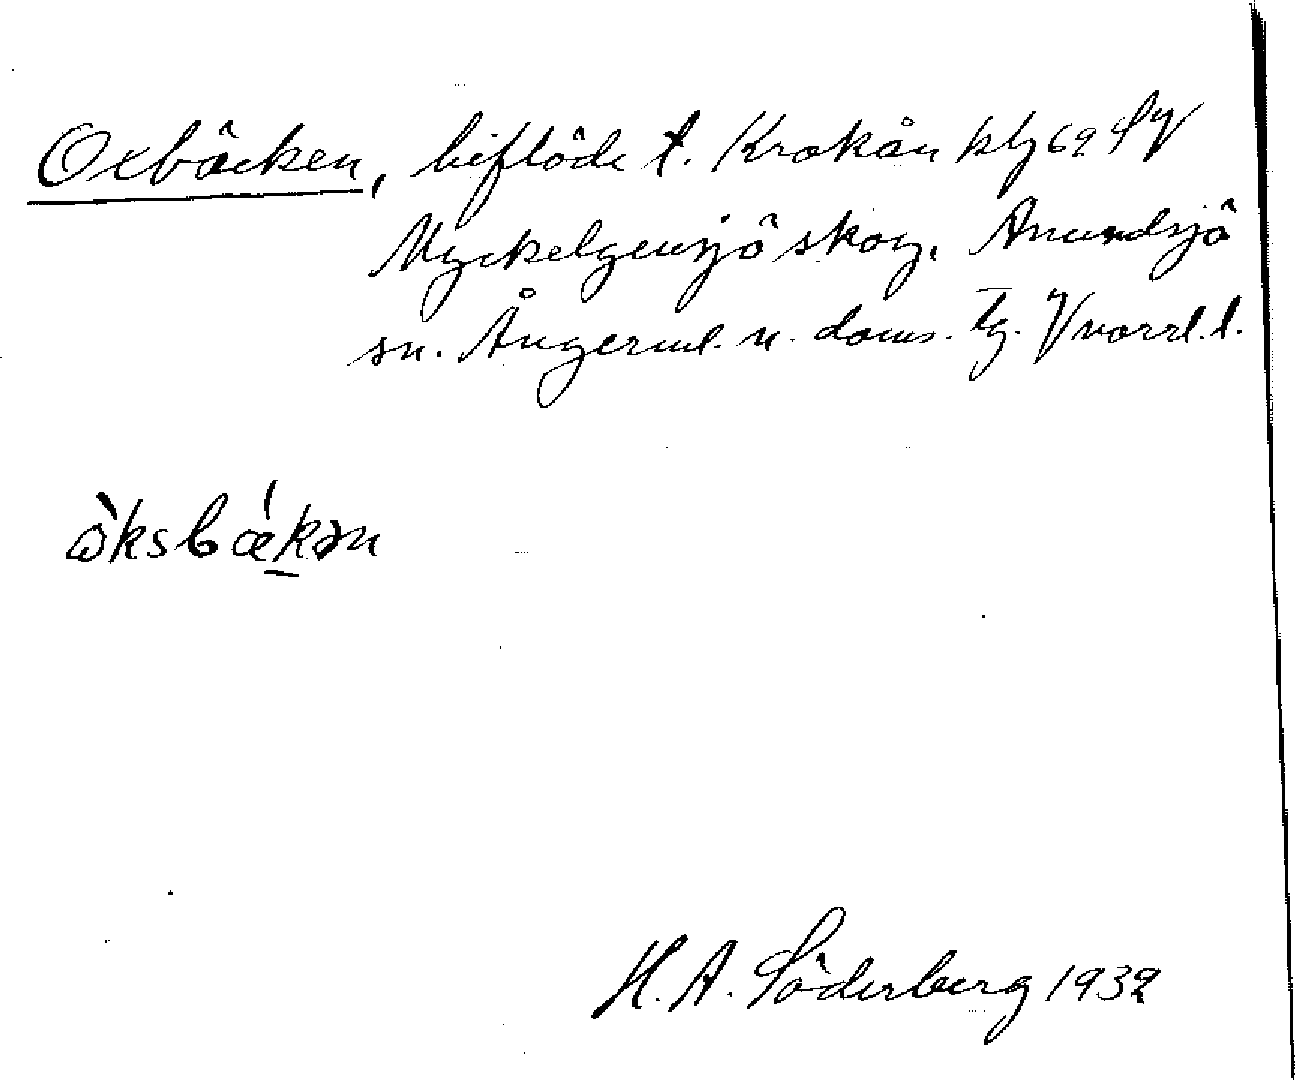 Oxbäcken, biflöde t. Kråkån blg 62 SV
Myckelgensjö skog, Anundsjö
sn. Ångerml. n. doms. tg. Y norrl. l.
òksbǽkən
H. A. Söderberg 1932